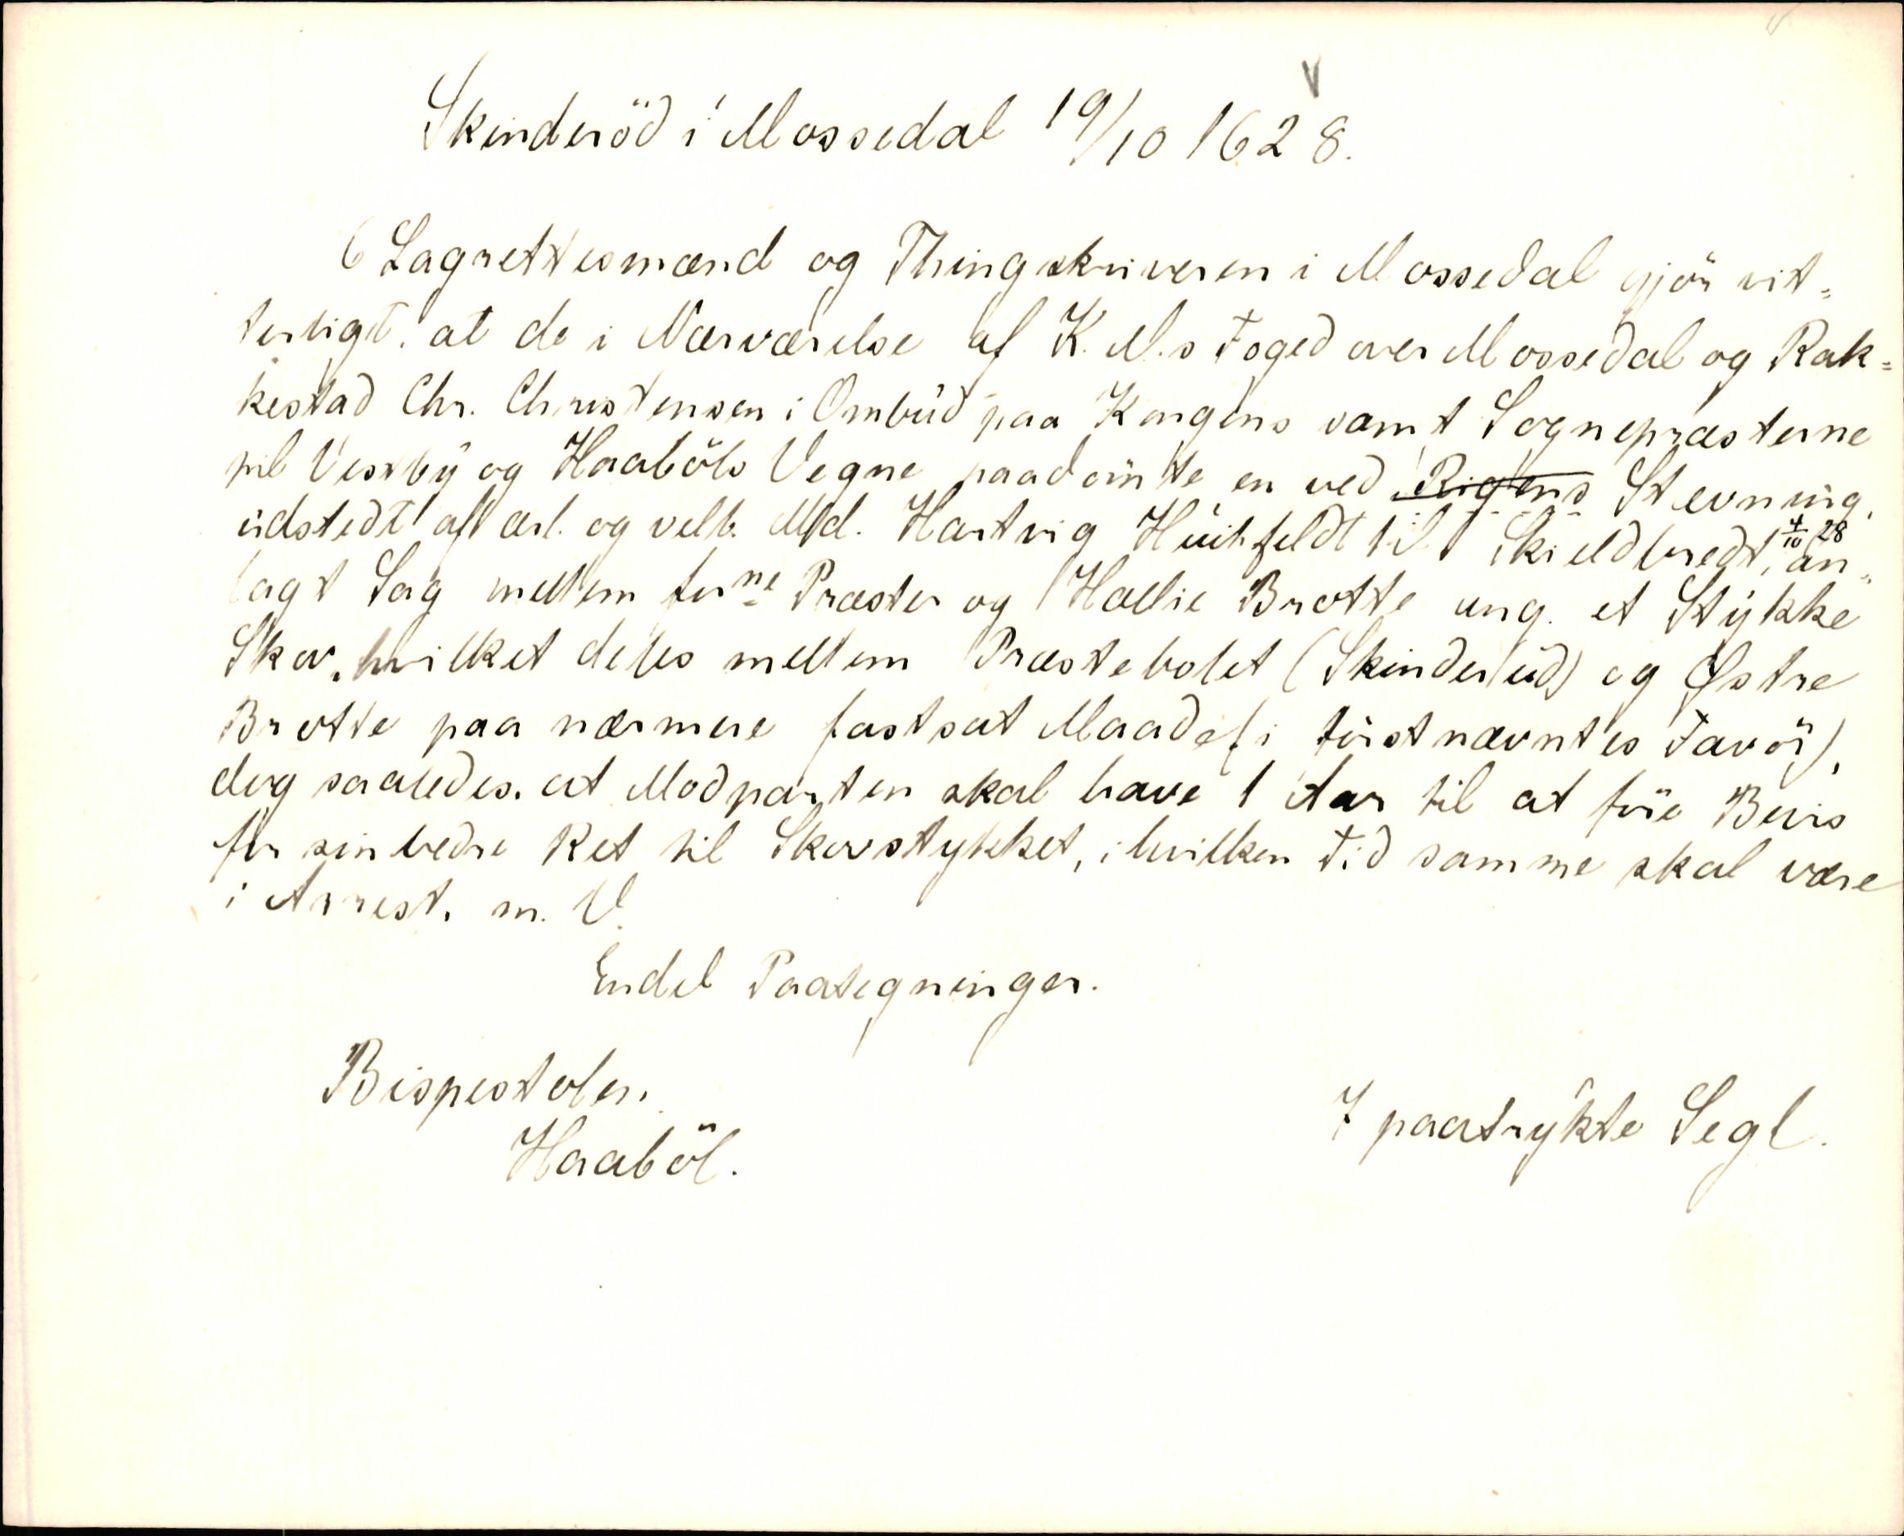 Skinderöd i Mossedal 19/10 1628.
6 Lagrettesmænd og Thingskriveren i Mossedal gjör vit=
terligt, at de i Nærværelse af K. M.s Foged over Mossedal og Rak=
kestad Chr. Christensen i Ombud paa Kongens samt Sognepræsterne
til Vestby og Haaböls Vegne paadömte en ved Rigens Stevning,
udstedt af ærl. og velb. Md. Hartvig Huitfeldt til Skieldbredt, 4/10 28 an=
lagt Sag mellem forne Præster og Hallie Brotte ang. et Stykke
Skov, hvilket deles mellem Præstebolet (Skinderud) og Østre
Brotte paa nærmere fastsat Maade (i förstnævntes Favör),
dog saaledes, at Modparten skal have 1 Aar til at före Bevis
for sin bedre Ret til Skovstykket, i hvilken Tid samme skal være
i Arrest. m. V.
Endel Paategninger.
Bispestolen.
Haaböl.
7 paatrykte Segl.